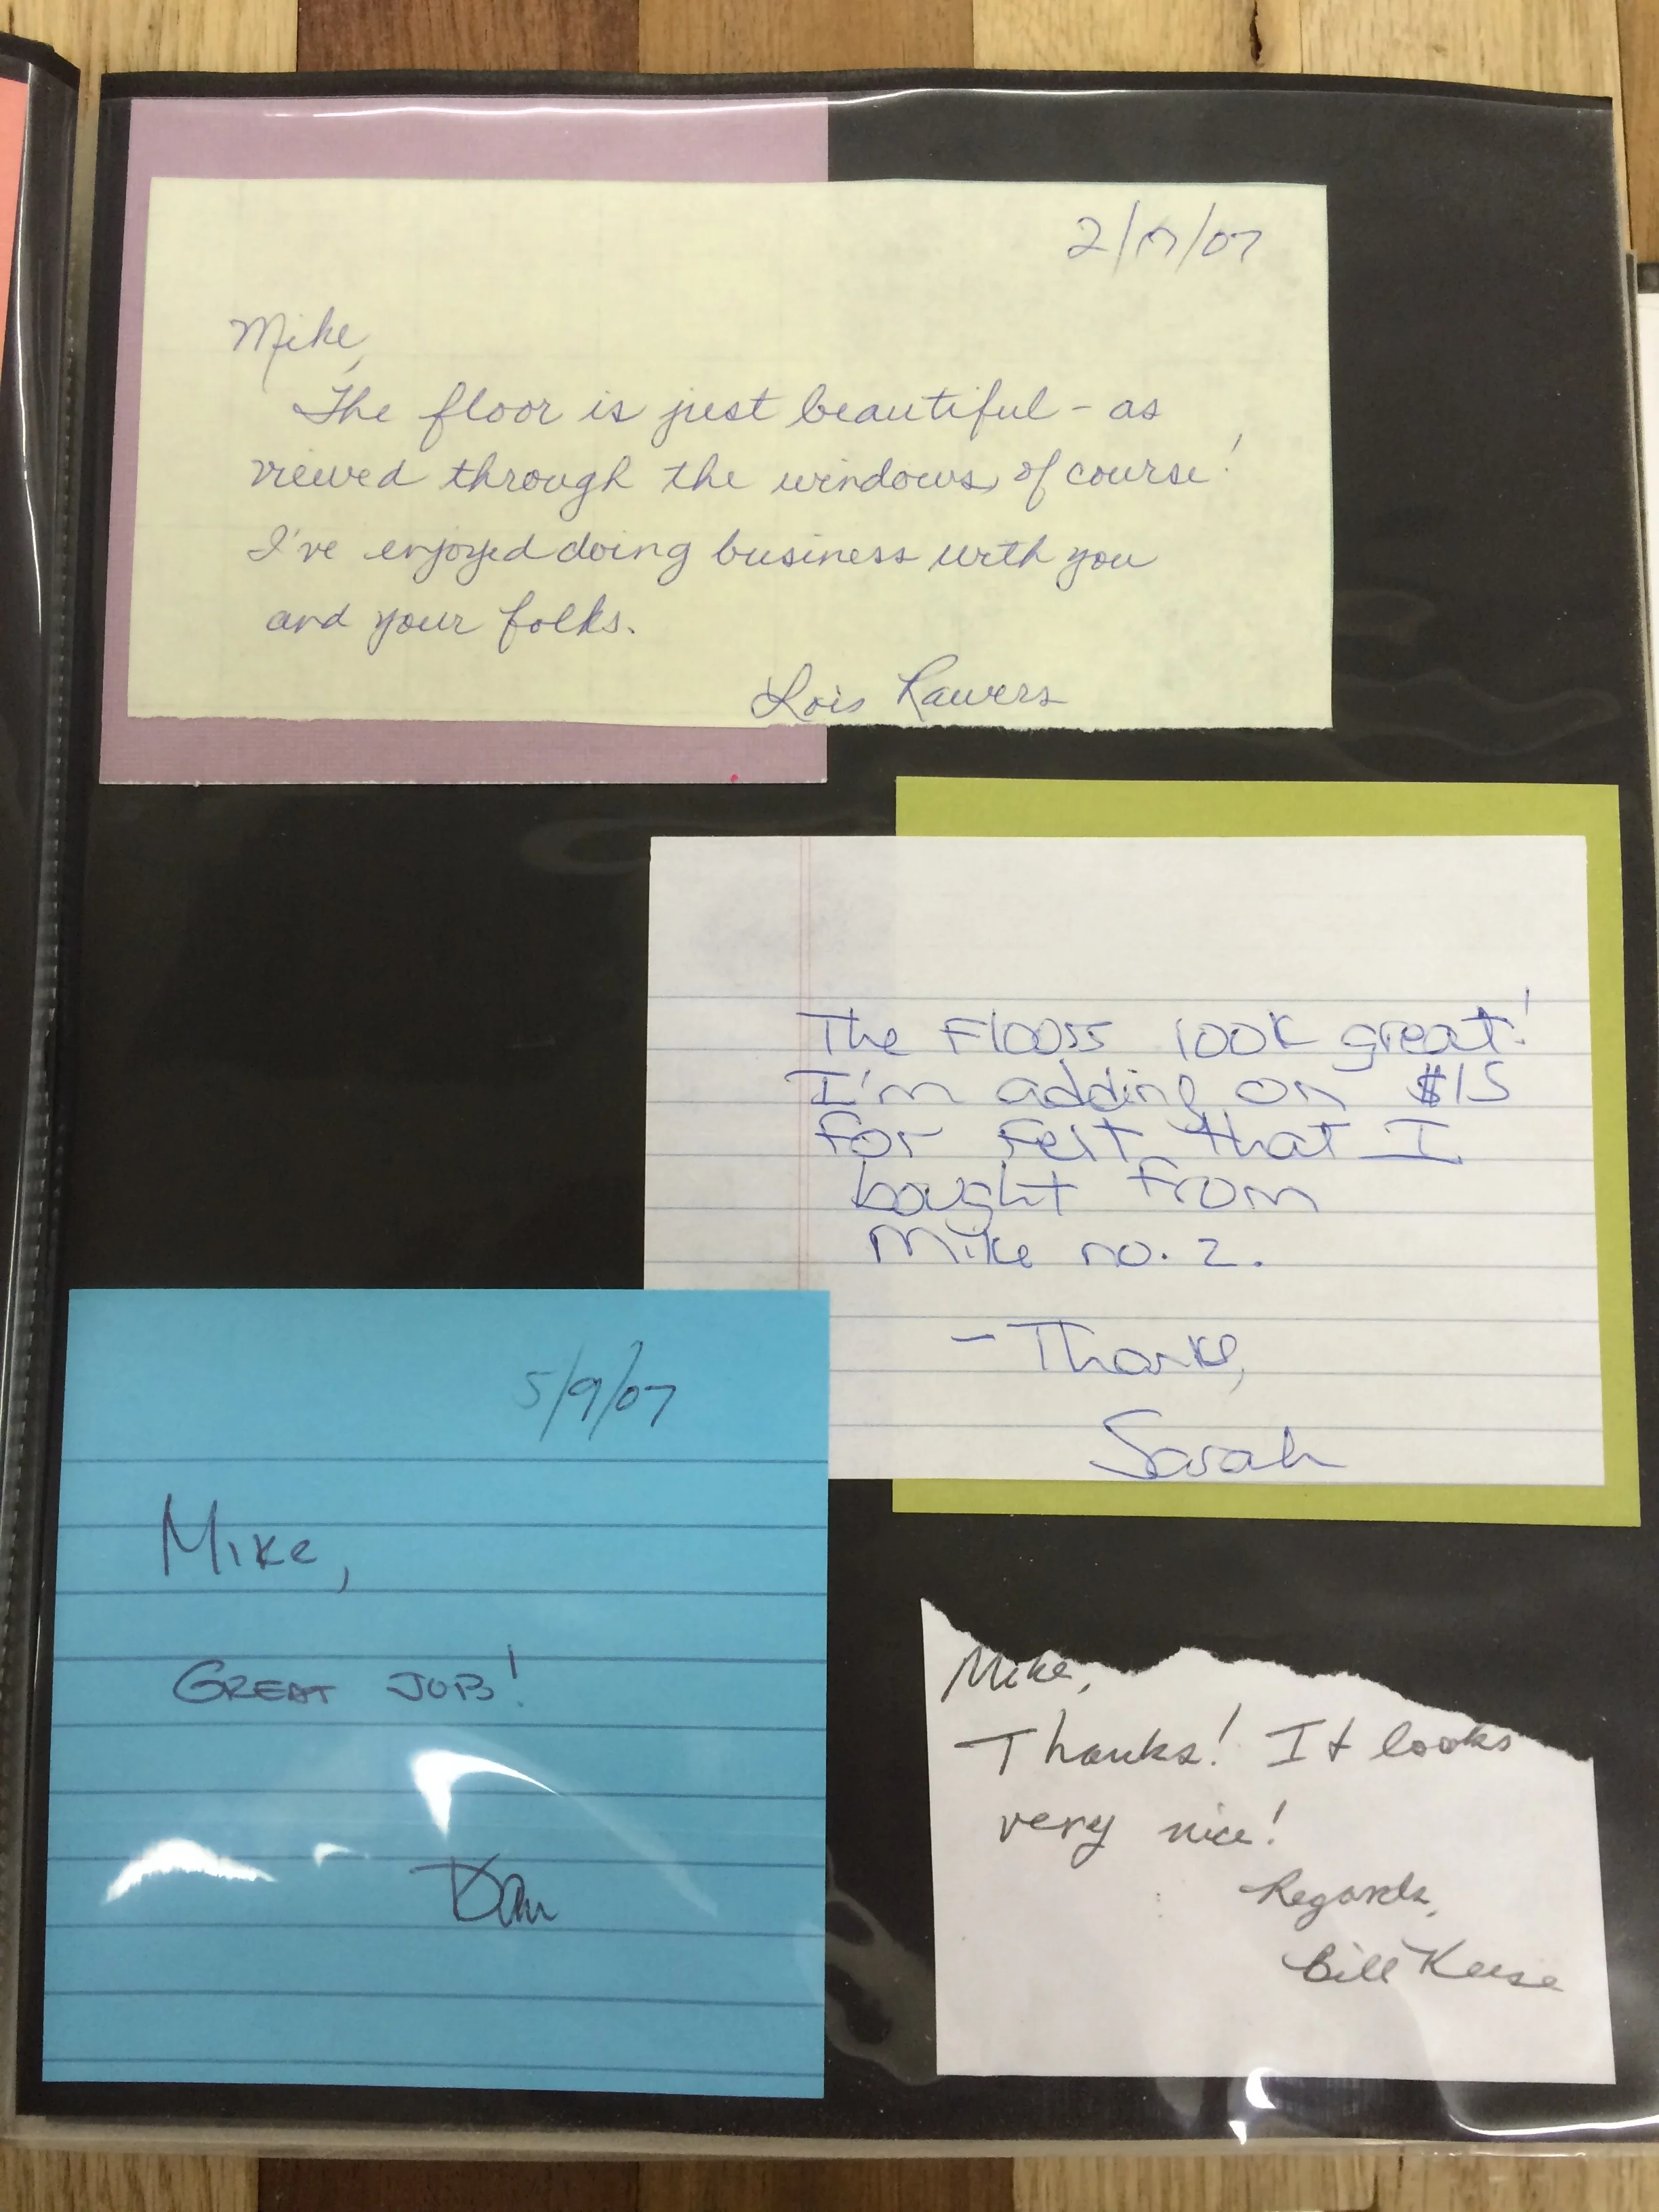 2/17/07
Mike,
The floor is just beautiful - as
viewed through the windows, of course!
I've enjoyed doing business with you
and your folks.
Lois Rawers
The Floors look great!
I'm adding on $15
for felt that I
bought from
Mike no. 2.
- Thanks,
Sarah
5/9/07
Mike,
GREAT JOB!
Dan
Mike,
Thanks! It looks
very nice!
Regards,
Bill Keese